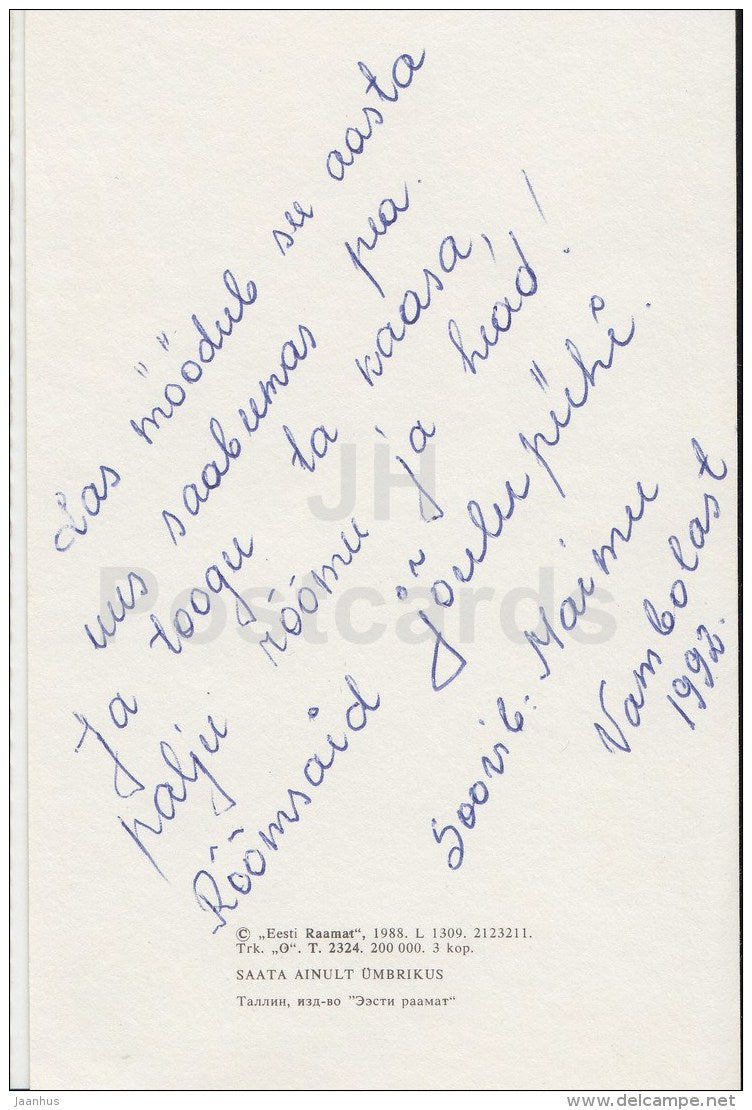 Las möödub see aasta
uus saabumas pea.
Ja toogu ta kaasa,
palju rõõmu ja head!
Rõõmsaid jõulupühi.
Soovib: Maimu
Vambolast
1992.
JH
Postcards
© „Eesti Raamat“, 1988. L 1309. 2123211.
Trk. „O“. T. 2324. 200 000. 3 kop.
SAATA AINULT ÜMBRIKUS
Таллин, изд-во "Ээсти раамат"
Jaanhus
delcampe.net